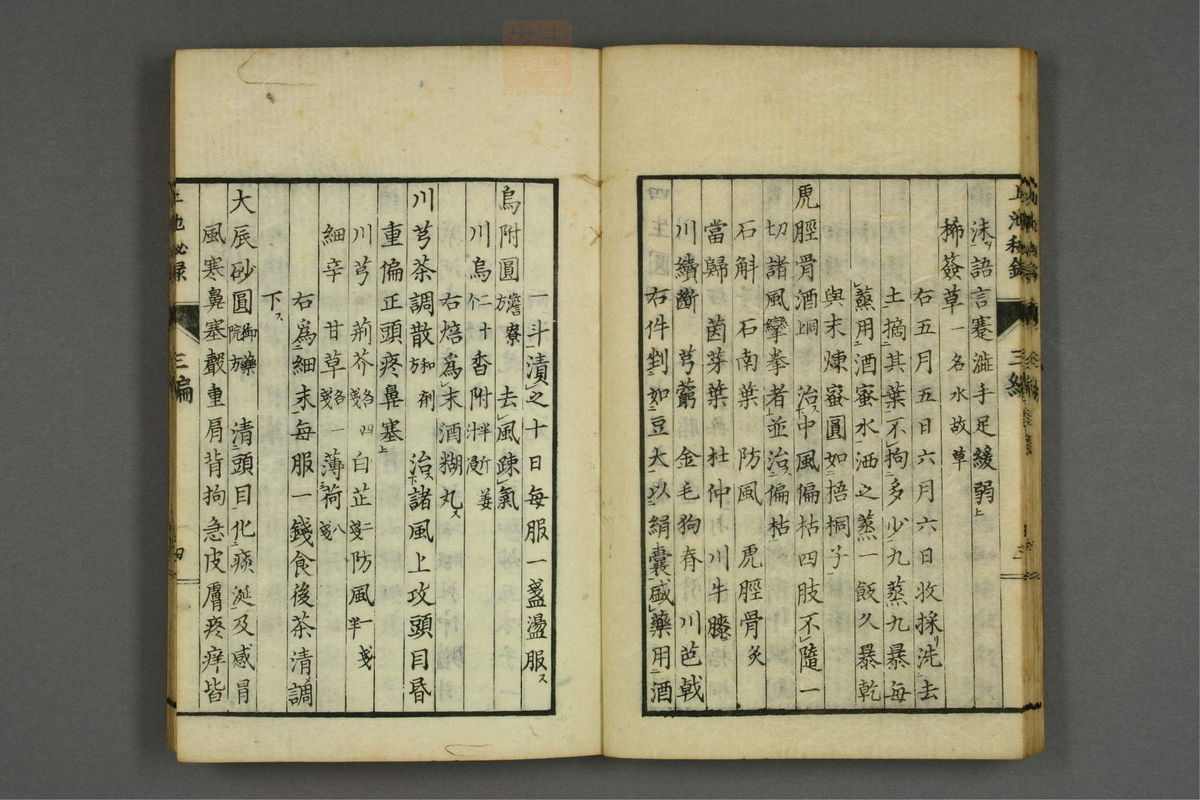 沫ヲ語言蹇澁手足緩弱上
稀簽草一名水故草
右五月五日六月六日收採リ洗去
土摘其葉不拘多少九蒸九暴每
蒸用酒蜜水洒之蒸一飯久暴乾
與末煉蜜圓如梧桐子
虎脛骨酒上同 治ス中風偏枯四肢不隨一
切諸風攣拳者並治ス偏枯
石斛 石南葉 防風 虎脛骨炙
當歸 茵芋葉 杜仲 川牛膝
川續斷 芎藭 金毛狗脊 川芭戟
右件剉如豆大以絹囊盛藥用酒
一斗漬之十日每服一盞盪服ス
烏附圓澹寮方 去風疎氣
川烏二十 香附半斤姜汁浸
右焙爲末酒糊丸ス
川芎茶調散和劑方 治ス諸風上攻頭目昏
重偏正頭疼鼻塞上
川芎 荊芥各四戔 白芷二戔 防風一戔半
細辛 甘草各一戔 薄荷八戔
右爲細末每服一錢食後茶清調
下ス
大辰砂圓御藥院方 清頭目化痰涎及感冒
風寒鼻塞聲重肩背拘急皮膚疼痒皆
三編